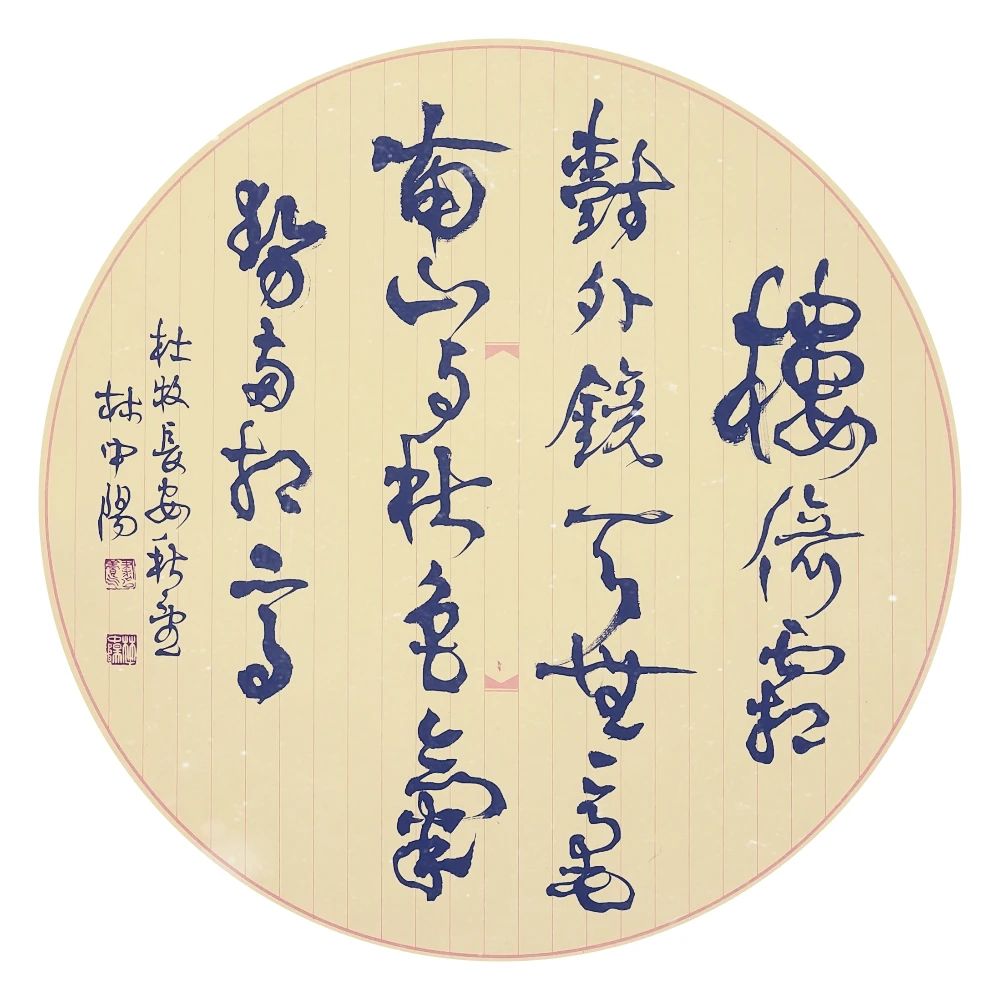 樓倚霜
樹外鏡天無一毫
南山与秋色氣
勢兩相高
杜牧長安秋望
林中陽
林中陽